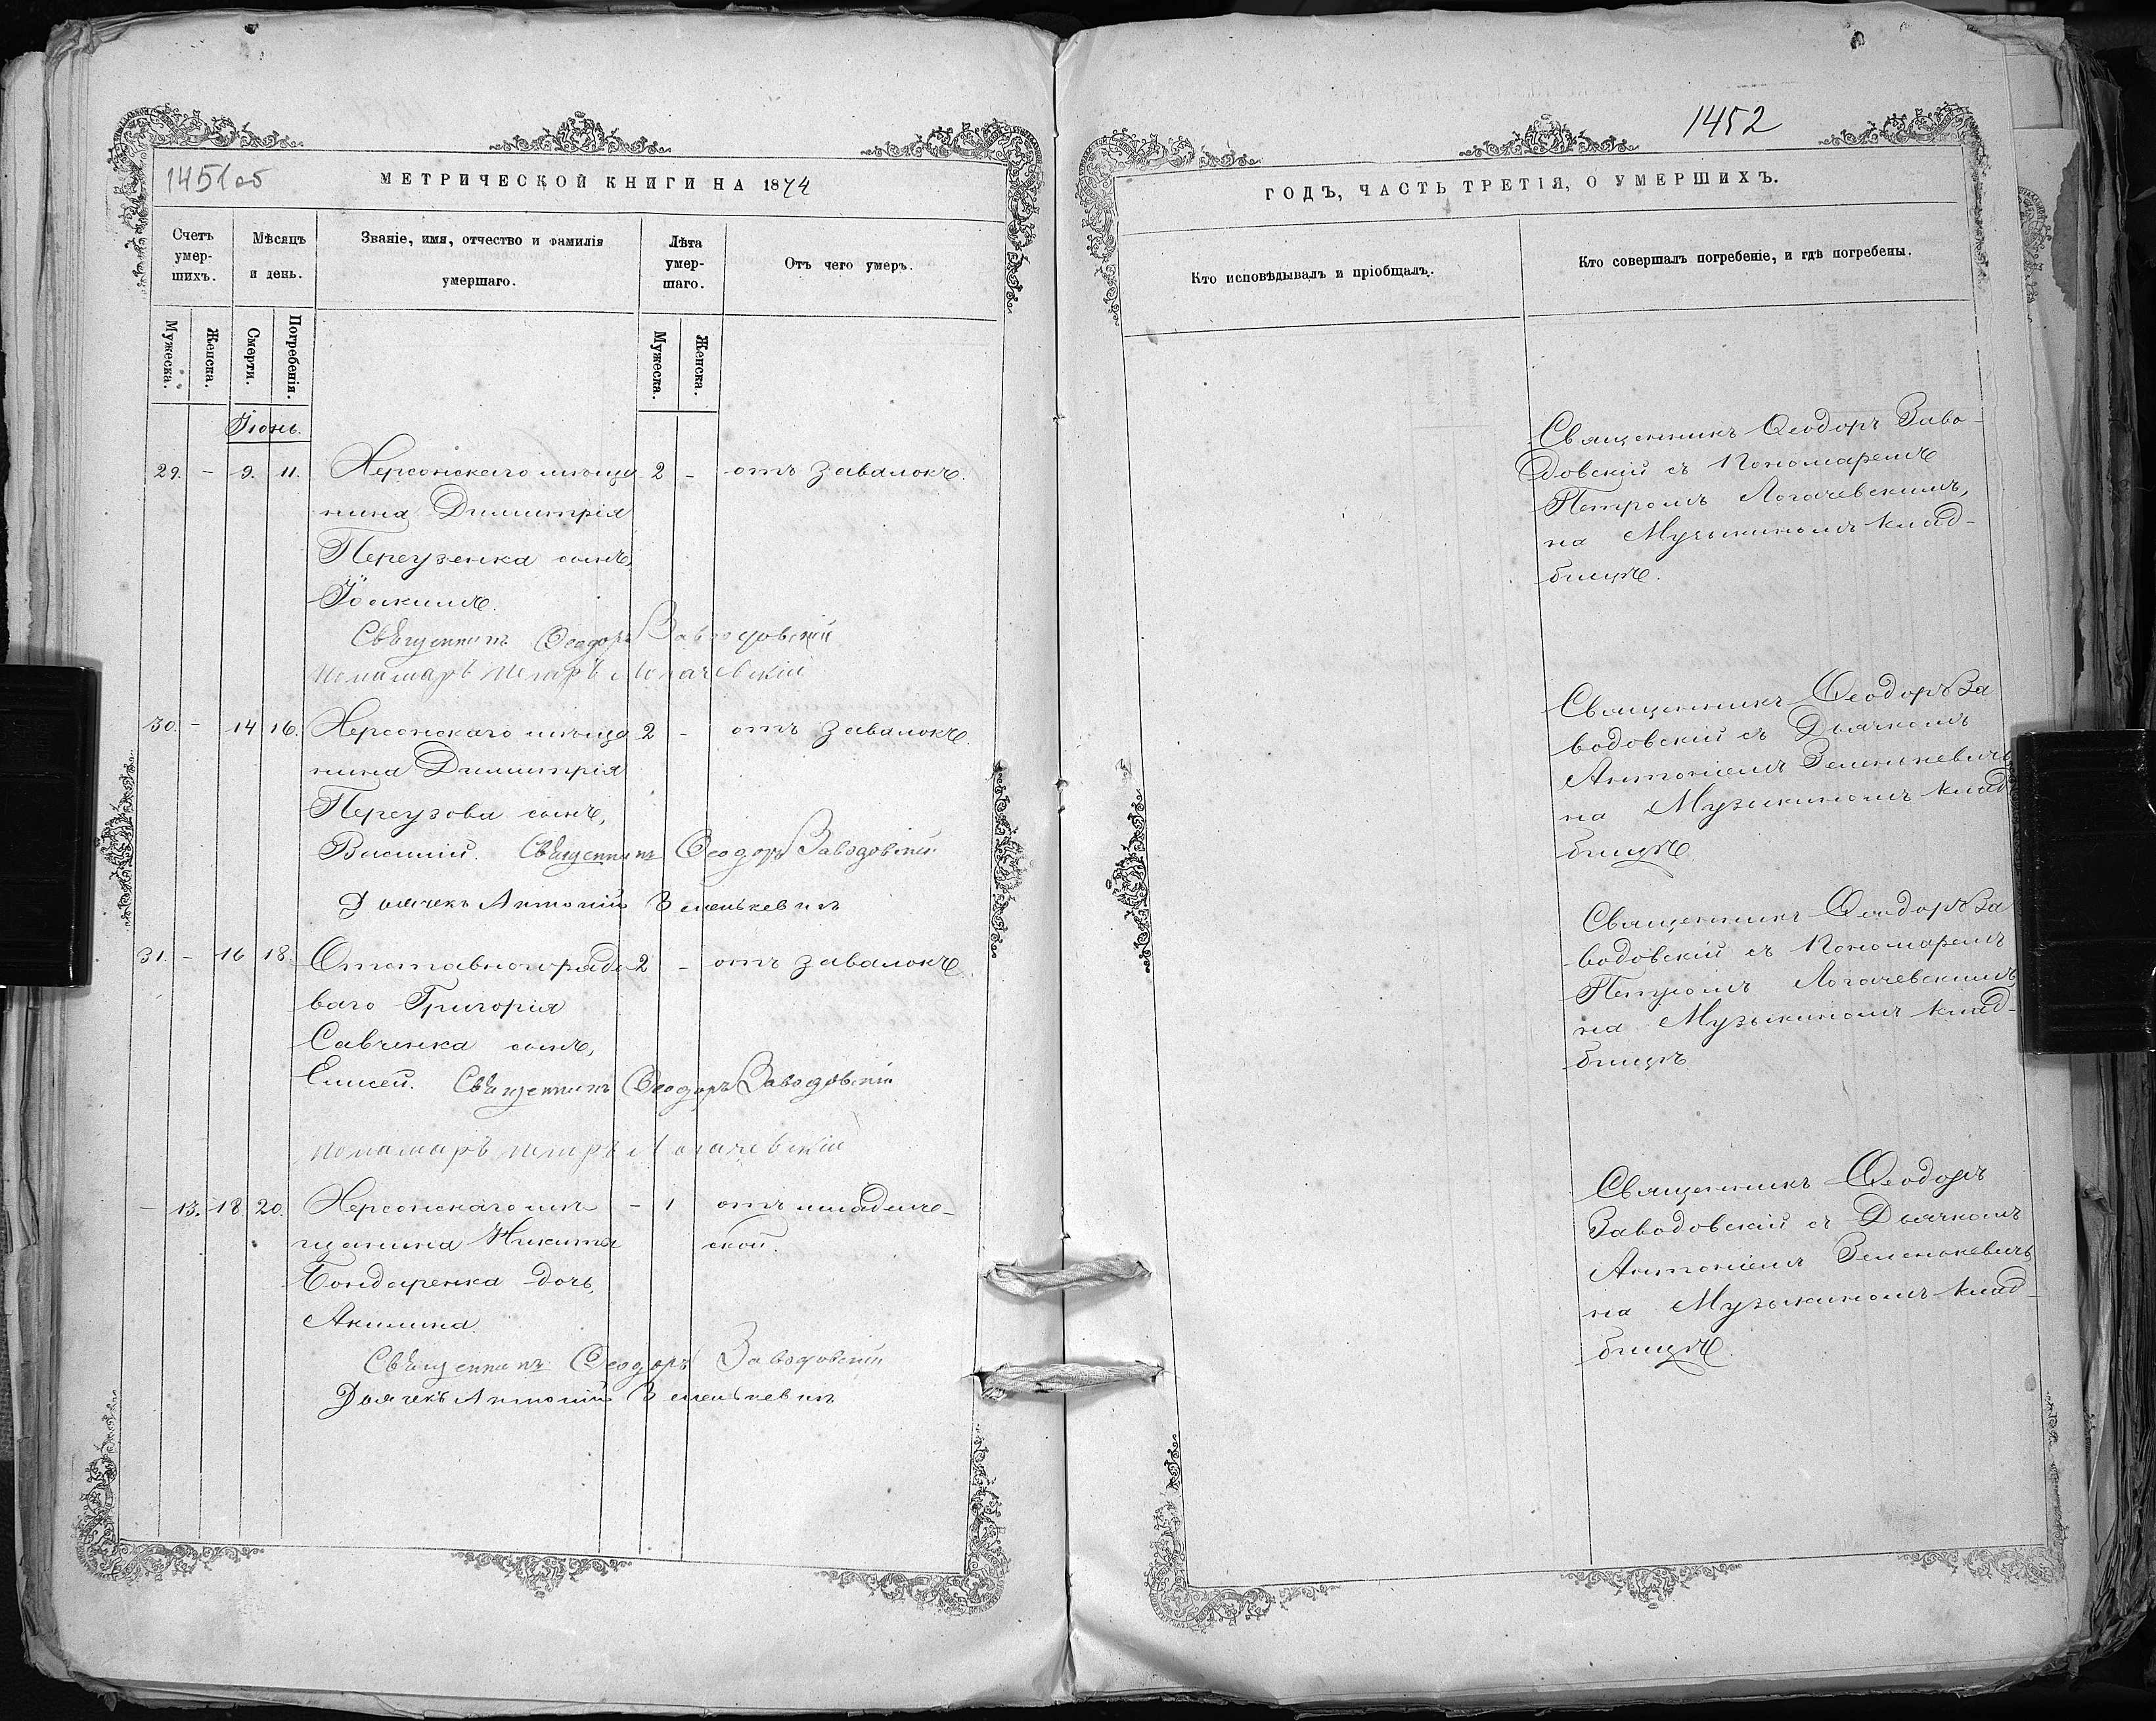 1451об
МЕТРИЧЕСКОЙ КНИГИ НА 1874
Счетъ умер-шихъ.
Мѣсяцъ и день.
Званіе, имя, отчество и фамилія умершаго.
Лѣта умер-шаго.
Отъ чего умеръ.
Мужеска.
Женска.
Смерти.
Погребенія.
Мужеска.
Женска.
Іюнь.
29. - 9. 11. Херсонскаго мѣща 2 - отъ завалокъ.
нина Димитрія
Переузенка сынъ,
Іоакимъ.
Священникъ Ѳеодоръ Заводовскій
Пономаръ Петръ Логачевскій
30. - 14 16. Херсонскаго мѣща 2 - отъ завалокъ.
нина Димитрія
Переузова сынъ,
Василій. Священникъ Ѳеодоръ Заводовскій
Дьячекъ Антоній Зеленкевичъ
31. - 16 18. Отставного рядо 2 - отъ завалокъ
ваго Григорія
Савченка сынъ,
Елисей. Священникъ Ѳеодоръ Заводовскій
Пономаръ Петръ Логачевскій
- 13. 18 20. Херсонскаго мѣ - 1 отъ младенче-
щанина Никиты ской.
Бондаренка дочь,
Акилина.
Священникъ Ѳеодоръ Заводовскій
Дьячекъ Антоній Зеленькевичъ
1452
ГОДЪ, ЧАСТЬ ТРЕТІЯ, О УМЕРШИХЪ.
Кто исповѣдывалъ и пріобщалъ.
Кто совершалъ погребеніе, и гдѣ погребены.
Священникъ Ѳеодоръ Заво-
довскій съ Пономаремъ
Петромъ Логачевскимъ,
на Музыкиномъ клад-
бищѣ.
Священникъ Ѳеодоръ За
водовскій съ Дьячкомъ
Антоніемъ Зеленкевичъ
на Музыкиномъ клад
бищѣ
Священникъ Ѳеодоръ За
водовскій съ Пономаремъ
Петромъ Логачевскимъ,
на Музыкиномъ клад-
бищѣ
Священникъ Ѳеодоръ
Заводовскій съ Дьячкомъ
Антоніемъ Зеленкевичъ,
на Музыкиномъ клад-
бищѣ.